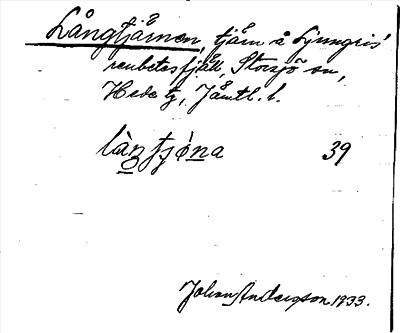 Långtjärnen, tjärn å Ljungris'
renbetesfjäll, Storsjö sn,
Hede tg, Jämtl. l.
làŋtjǿna 39
Johan Anderson 1933.